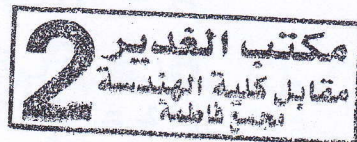 مكتب القدير
مقابل كلية الهندسة
مجمع فاطمة
2